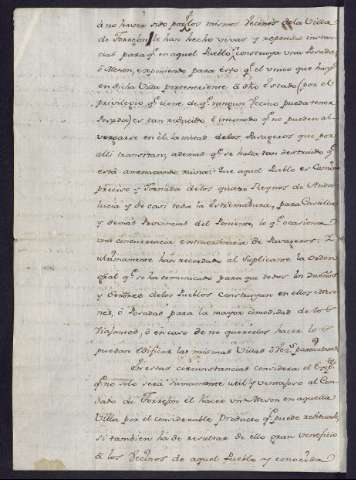 á no haver sido por los mismos Vecinos de la Villa
de Torrejon, le han hecho vivas y repetidas instan-
cias para q.e en aquel Pueblo construya una Posada
ó Meson, exponiendo para esto q.e el unico que hay
en dicha Villa perteneciente á dho estado (por el
privilegio q.e tiene de q.e ningun Vecino pueda tener
Posada) es tan reducido é incomodo q.e no pueden al-
vergarse en él la mitad de los Pasageros que por
alli transitan, ademas q.e se halla tan destruido q.e
está amenazando ruina: Que aquel Pueblo es Camino
preciso y Jornada de los quatro Reynos de Anda-
lucia y de casi toda la Extremadura, para Castilla
y demás Provincias del            lo q.e ocasiona
una concurrencia extraordinaria de Pasageros: I
ultimamente han recordado al Suplicante la orden
gral q.e se ha comunicado para que todos los Dueños
y            de los Pueblos construyan en ellos Meso-
nes, ó Posadas para la mayor comodidad de los
Viajantes, ó en caso de no quererlos hacer los
puedan edificar las mismas Villas ó            particulares.
En estas circunstancias considera el
q.e no solo será sumamente util y ventajoso al Con-
dado de Torrejon el hacer un Meson en aquella
Villa por el considerable Producto q.e puede redituar,
si tambien ha de resultar de ello gran veneficio
á los Vecinos de aquel Pueblo y conocida